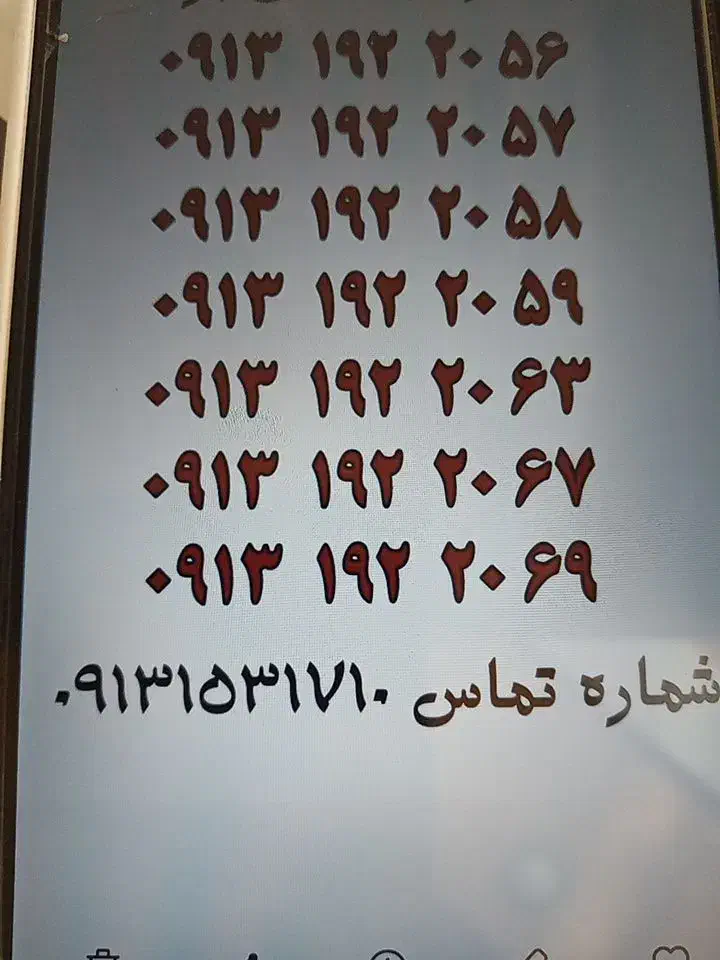 ۰۹۱۳ ۱۹۲ ۲۰۵۶
۰۹۱۳ ۱۹۲ ۲۰۵۷
۰۹۱۳ ۱۹۲ ۲۰۵۸
۰۹۱۳ ۱۹۲ ۲۰۵۹
۰۹۱۳ ۱۹۲ ۲۰۶۳
۰۹۱۳ ۱۹۲ ۲۰۶۷
۰۹۱۳ ۱۹۲ ۲۰۶۹
شماره تماس ۰۹۱۳۱۵۳۱۷۱۰